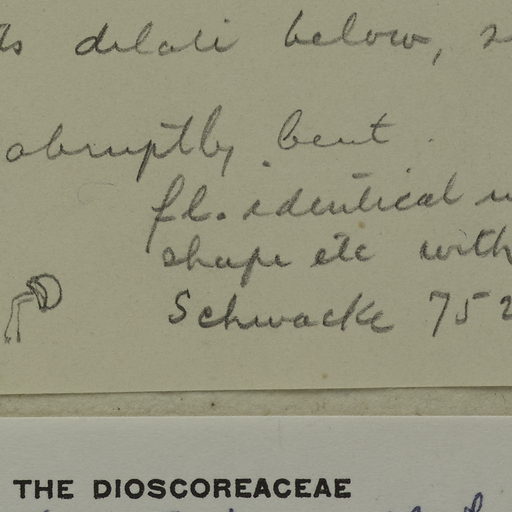 dilate below,
abruptly bent.
fl. identical
shape etc with
Schwacke 752
THE DIOSCOREACEAE